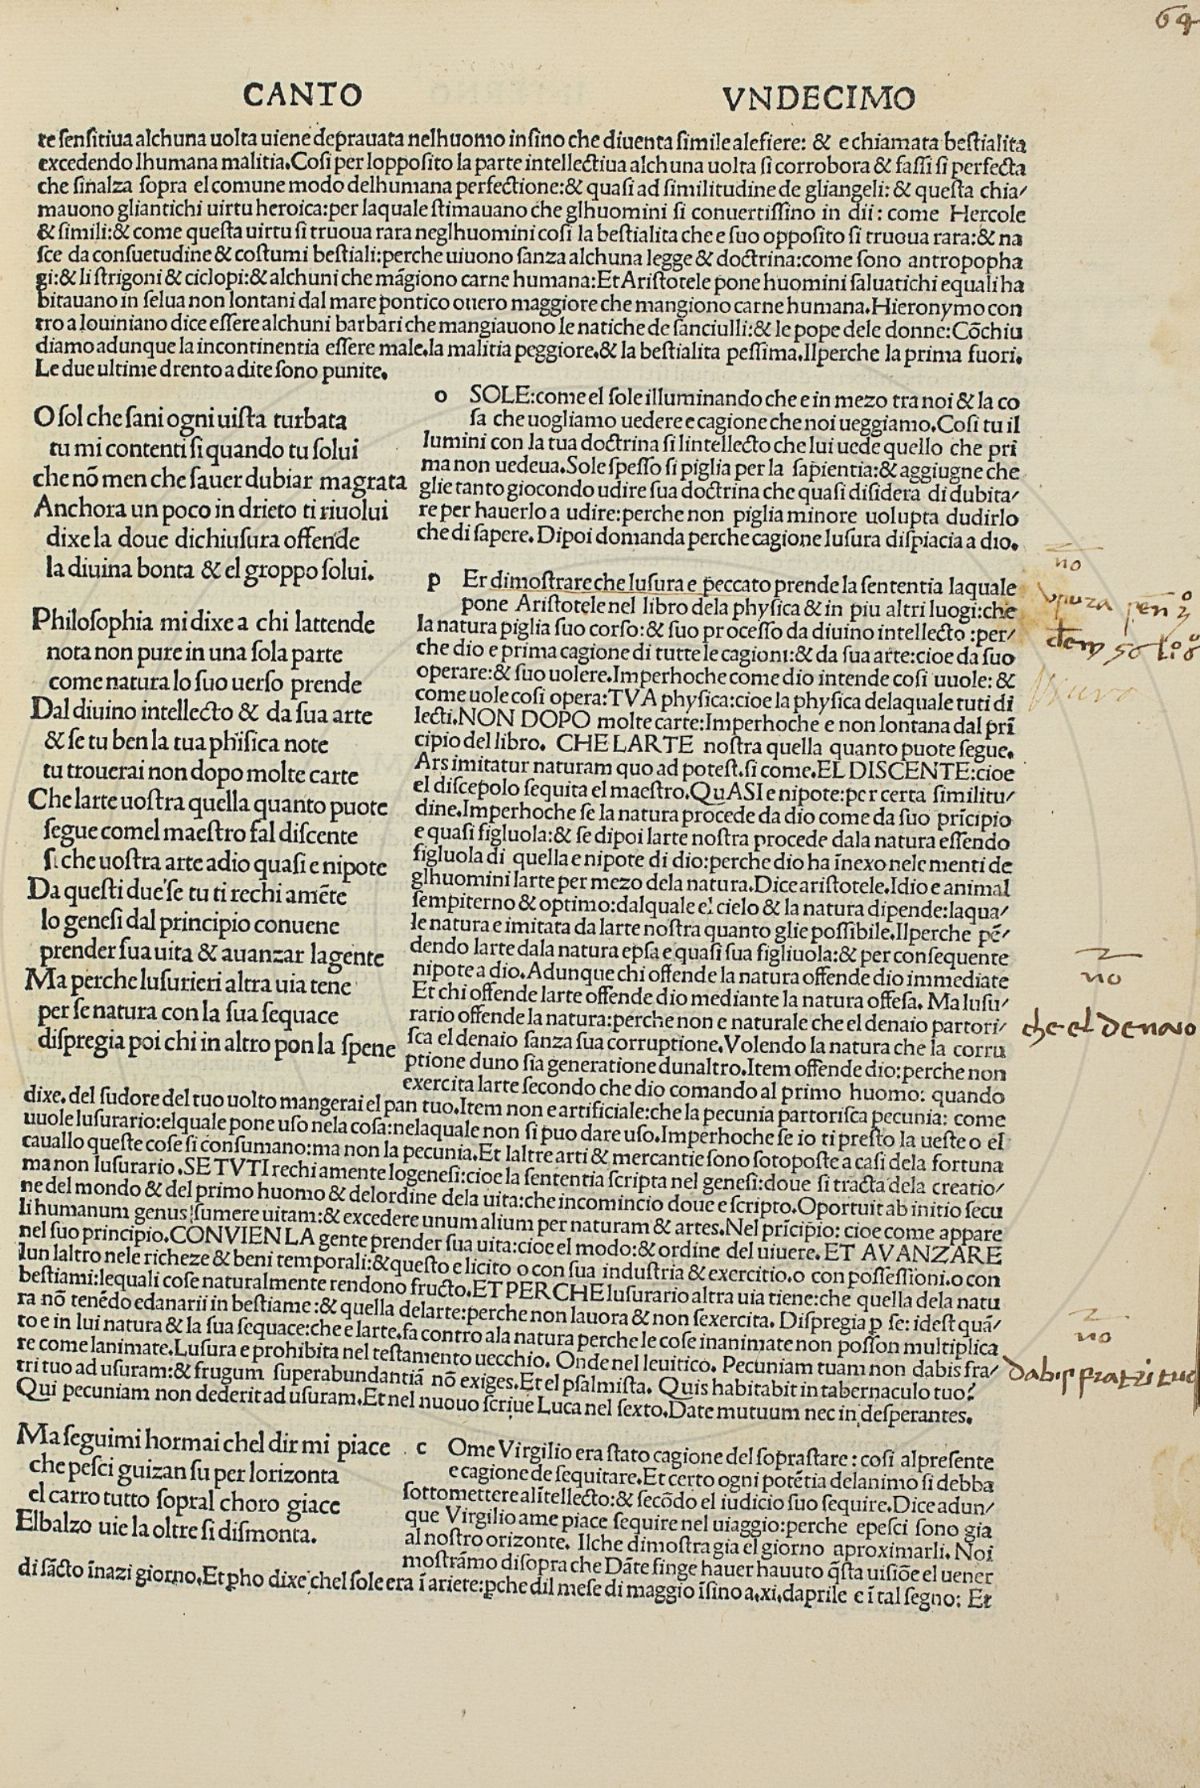 64
CANTO VNDECIMO
te ſenſitiua alchuna uolta uiene deprauata nelhuomo inſino che diuenta ſimile alefiere: & e chiamata beſtialita
excedendo lhumana malitia.Coſi per loppoſito la parte intellectiua alchuna uolta ſi corrobora & faſſi ſi perfecta
che ſinalza ſopra el comune modo delhumana perfectione:& quaſi ad ſimilitudine de gliangeli: & queſta chia/
mauono gliantichi uirtu heroica:per laquale ſtimauano che glhuomini ſi conuertiſſino in dii: come Hercole
& ſimili:& come queſta uirtu ſi truoua rara neglhuomini coſi la beſtialita che e ſuo oppoſito ſi truoua rara:& na
ſce da conſuetudine & coſtumi beſtiali:perche uiuono ſanza alchuna legge & doctrina:come ſono antropopha
gi:& li ſtrigoni & ciclopi:& alchuni che mãgiono carne humana:Et Ariſtotele pone huomini ſaluatichi equali ha
bitauano in ſelua non lontani dal mare pontico ouero maggiore che mangiono carne humana.Hieronymo con
tro a Iouiniano dice eſſere alchuni barbari che mangiauono le natiche de fanciulli:& le pope dele donne:Cõchiu
diamo adunque la incontinentia eſſere male.la malitia peggiore.& la beſtialita peſſima.Ilperche la prima fuori.
Le due ultime drento a dite ſono punite.
O ſol che ſani ogni uiſta turbata
tu mi contenti ſi quando tu ſolui
che nõ men che ſauer dubiar magrata
Anchora un poco in drieto ti riuolui
dixe la doue dichiuſura offende
la diuina bonta & el groppo ſolui.
o SOLE:come el ſole illuminando che e in mezo tra noi & la co
ſa che uogliamo uedere e cagione che noi ueggiamo.Coſi tu il
lumini con la tua doctrina ſi lintellecto che lui uede quello che pri
ma non uedeua.Sole ſpeſſo ſi piglia per la ſapientia:& aggiugne che
glie tanto giocondo udire ſua doctrina che quaſi diſidera di dubita/
re per hauerlo a udire:perche non piglia minore uolupta dudirlo
che di ſapere.Dipoi domanda perche cagione luſura diſpiacia a dio.
Philoſophia mi dixe a chi lattende
nota non pure in una ſola parte
come natura lo ſuo uerſo prende
Dal diuino intellecto & da ſua arte
& ſe tu ben la tua phiſica note
tu trouerai non dopo molte carte
Che larte uoſtra quella quanto puote
ſegue comel maeſtro fal diſcente
ſi che uoſtra arte adio quaſi e nipote
Da queſti due ſe tu ti rechi amẽte
lo geneſi dal principio conuene
prender ſua uita & auanzar lagente
Ma perche luſurieri altra uia tene
per ſe natura con la ſua ſequace
diſpregia poi chi in altro pon la ſpene
p Er dimoſtrare che luſura e peccato prende la ſententia laquale
pone Ariſtotele nel libro dela phyſica & in piu altri luogi:che
la natura piglia ſuo corſo:& ſuo proceſſo da diuino intellecto :per/
che dio e prima cagione di tutte le cagioni:& da ſua arte:cioe da ſuo
operare:& ſuo uolere.Imperhoche come dio intende coſi uuole: &
come uole coſi opera:TVA phyſica:cioe la phyſica delaquale tuti di
lecti.NON DOPO molte carte:Imperhoche e non lontana dal prĩ
cipio del libro. CHE LARTE noſtra quella quanto puote ſegue.
Ars imitatur naturam quo ad poteſt.ſi come.EL DISCENTE:cioe
el diſcepolo ſequita el maeſtro.QuASI e nipote:per certa ſimilitu/
dine.Imperhoche ſe la natura procede da dio come da ſuo prĩcipio
e quaſi figluola:& ſe dipoi larte noſtra procede dala natura eſſendo
figluola di quella e nipote di dio:perche dio ha ĩnexo nele menti de
glhuomini larte per mezo dela natura.Dice ariſtotele.Idio e animal
ſempiterno & optimo:dalquale el cielo & la natura dipende:laqua/
le natura e imitata da larte noſtra quanto glie poſſibile.Ilperche pẽ/
dendo larte dala natura epſa e quaſi ſua figliuola:& per conſequente
nipote a dio.Adunque chi offende la natura offende dio immediate
Et chi offende larte offende dio mediante la natura offeſa. Ma luſu/
rario offende la natura:perche non e naturale che el denaio partori/
ſca el denaio ſanza ſua corruptione.Volendo la natura che la corru
ptione duno ſia generatione dunaltro.Item offende dio:perche non
exercita larte ſecondo che dio comando al primo huomo: quando
dixe.del ſudore del tuo uolto mangerai el pan tuo.Item non e artificiale:che la pecunia partoriſca pecunia: come
uuole luſurario:elquale pone uſo nela coſa:nelaquale non ſi puo dare uſo.Imperhoche ſe io ti preſto la ueſte o el
cauallo queſte coſe ſi conſumano:ma non la pecunia.Et laltre arti & mercantie ſono ſotopoſte a caſi dela fortuna
ma non luſurario.SE TVTI rechi amente logeneſi:cioe la ſententia ſcripta nel geneſi:doue ſi tracta dela creatio/
ne del mondo & del primo huomo & delordine dela uita:che incomincio doue e ſcripto.Oportuit ab initio ſecu
li humanum genus ſumere uitam:& excedere unum alium per naturam & artes.Nel prĩcipio: cioe come appare
nel ſuo principio.CONVIEN LA gente prender ſua uita:cioe el modo:& ordine del uiuere. ET AVANZARE
lun laltro nele richeze & beni temporali:& queſto e licito o con ſua induſtria & exercitio.o con poſſeſſioni.o con
beſtiami:lequali coſe naturalmente rendono fructo.ET PERCHE luſurario altra uia tiene:che quella dela natu
ra nõ tenẽdo edanarii in beſtiame:& quella delarte:perche non lauora & non ſexercita. Diſpregia ꝑ ſe: ideſt quã/
to e in lui natura & la ſua ſequace:che e larte.fa contro ala natura perche le coſe inanimate non poſſon multiplica
re come lanimate.Luſura e prohibita nel teſtamento uecchio. Onde nel leuitico. Pecuniam tuam non dabis fra/
tri tuo ad uſuram:& frugum ſuperabundantiã nõ exiges.Et el pſalmiſta. Quis habitabit in tabernaculo tuo?
Qui pecuniam non dederit ad uſuram.Et nel nuouo ſcriue Luca nel ſexto.Date mutuum nec in deſperantes.
no
no
che el denaio
no
dabis fratri tuo
Ma ſeguimi hormai chel dir mi piace
che peſci guizan ſu per lorizonta
el carro tutto ſopral choro giace
Elbalzo uie la oltre ſi diſmonta.
c Ome Virgilio era ſtato cagione del ſopraſtare : coſi al preſente
e cagione de ſequitare.Et certo ogni potẽtia delanimo ſi debba
ſottomettere alĩtellecto:& ſecõdo el iudicio ſuo ſequire.Dice adun/
que Virgilio ame piace ſequire nel uiaggio:perche epeſci ſono gia
al noſtro orizonte. Ilche dimoſtra gia el giorno aproximarli. Noi
moſtrãmo diſopra che Dãte finge hauer hauuto q̃ſta uiſiõe el uener
di ſãcto ĩnazi giorno.Et ꝑho dixe chel ſole era ĩ ariete:ꝑche dil meſe di maggio ĩſino a.xi.daprile e ĩ tal ſegno: Et